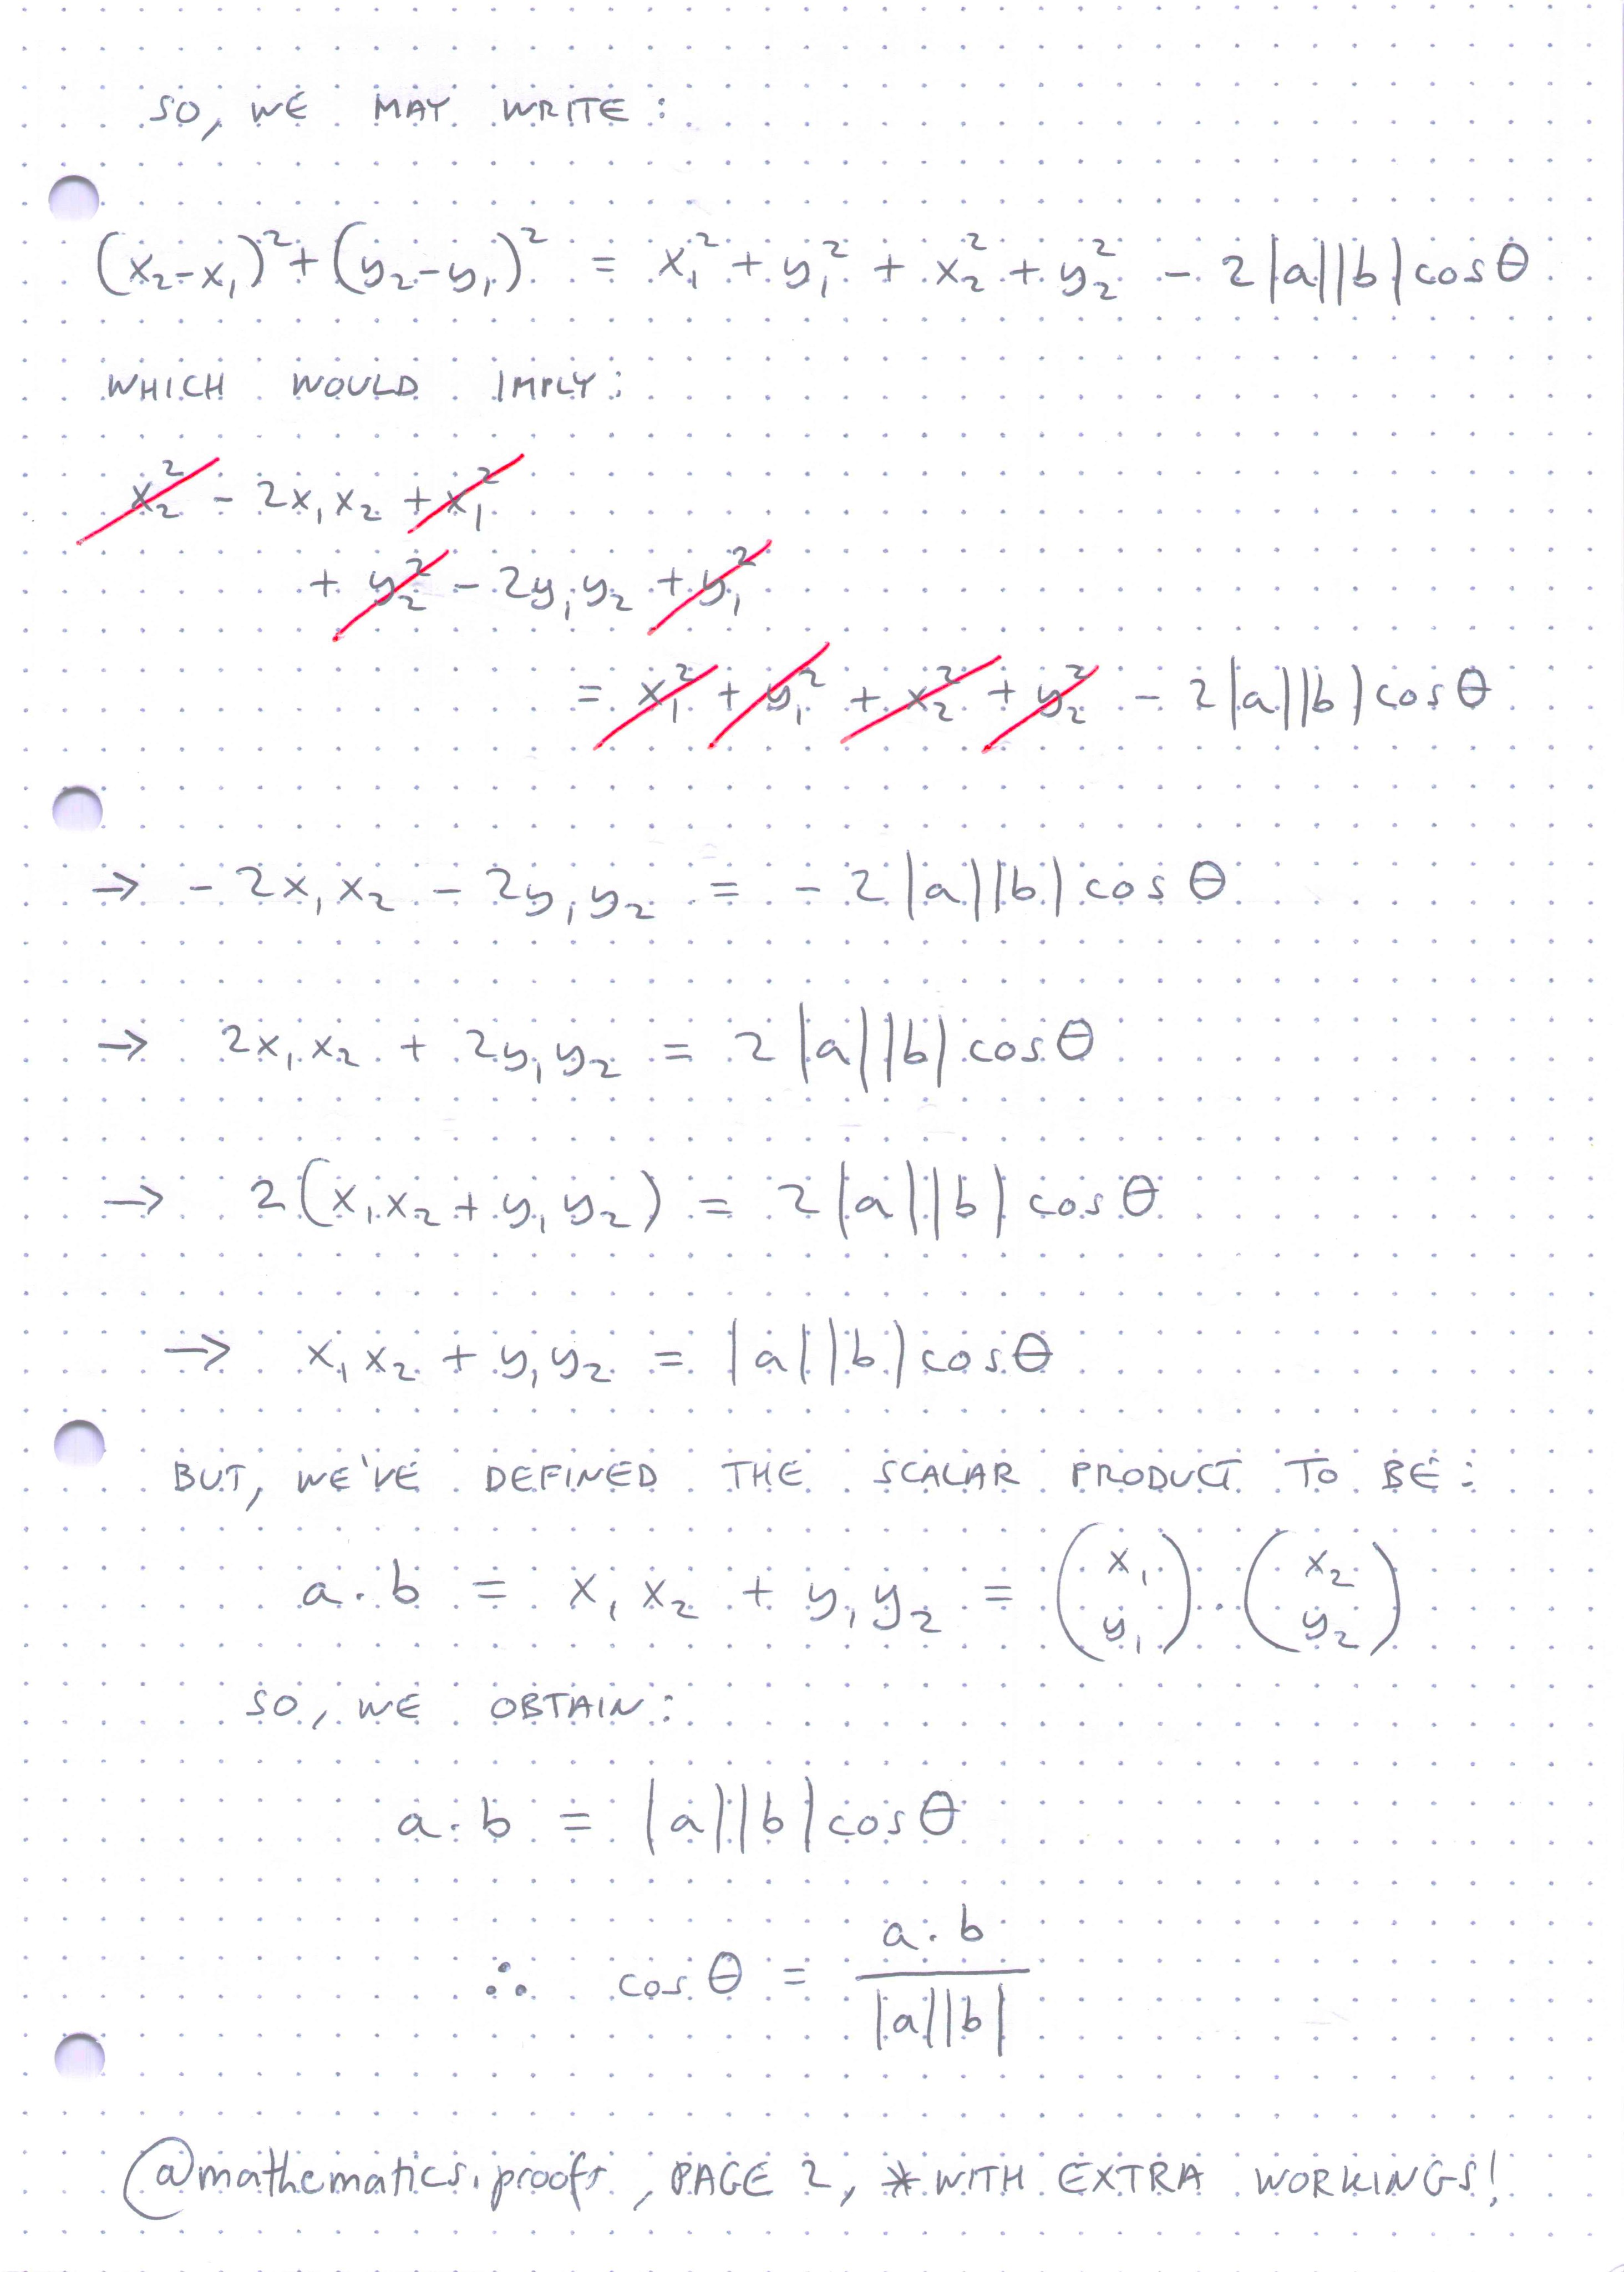 SO, WE MAY WRITE:
(x₂-x₁)² + (y₂-y₁)² = x₁² + y₁² + x₂² + y₂² - 2|a||b|cosθ
WHICH WOULD IMPLY:
x₂² - 2x₁x₂ + x₁²
+ y₂² - 2y₁y₂ + y₁²
= x₁² + y₁² + x₂² + y₂² - 2|a||b|cosθ
→ - 2x₁x₂ - 2y₁y₂ = - 2|a||b|cosθ
→ 2x₁x₂ + 2y₁y₂ = 2|a||b|cosθ
→ 2(x₁x₂ + y₁y₂) = 2|a||b|cosθ
→ x₁x₂ + y₁y₂ = |a||b|cosθ
BUT, WE'VE DEFINED THE SCALAR PRODUCT TO BE:
a.b = x₁x₂ + y₁y₂ = (x₁ y₁).(x₂ y₂)
SO, WE OBTAIN:
a.b = |a||b|cosθ
∴ cosθ = a.b / |a||b|
@mathematics.proofs, PAGE 2, *WITH EXTRA WORKINGS!